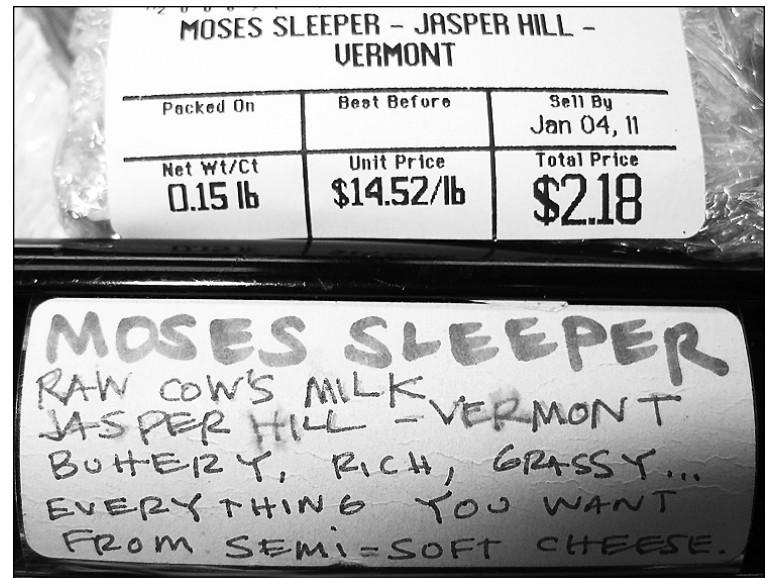 MOSES SLEEPER - JASPER HILL -
VERMONT
Packed On Best Before Sell By
Jan 04, 11
Net Wt/Ct Unit Price Total Price
0.15 lb $14.52/lb $2.18
MOSES SLEEPER
RAW COW'S MILK
JASPER HILL - VERMONT
BUTTERY, RICH, GRASSY...
EVERYTHING YOU WANT
FROM SEMI-SOFT CHEESE.